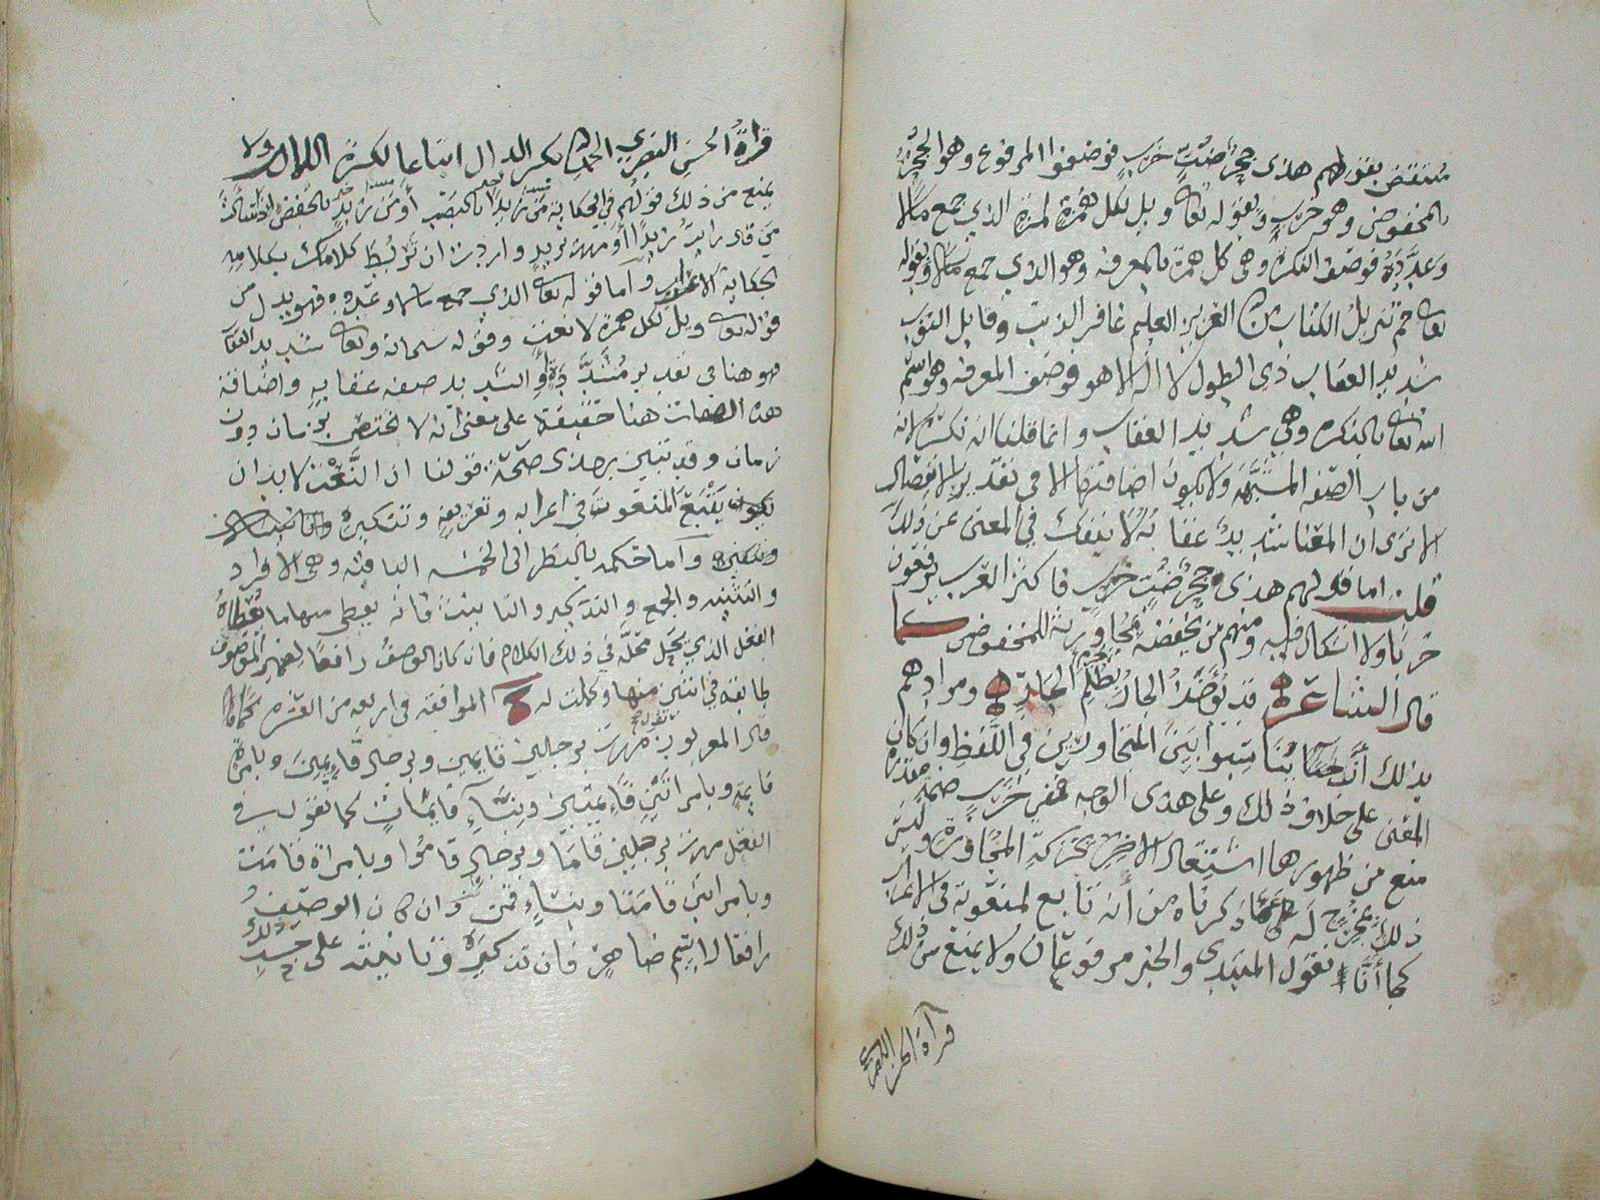 منتقض بقولهم هذى حجر ضب خرب فوضفوا المرفوع وهو الحجر
بالمخفوض وهو خرب وبقوله تعالى ويل لكل همزة لمزة الذي جمع مالا
وعدده فوصف النكرة وهي كل همزة بالمعرفة وهو الذي جمع مالا وبقوله
تعالى حم تنزيل الكتاب من الله العزيز العليم غافر الذنب وقابل التوب
شديد العقاب ذى الطول لا اله الا هو فوصف المعرفة وهو اسم
الله تعالى بالنكرة وهي شديد العقاب وانما قلنا انه نكرة لانه
من باب الصفة المشبهة ولا يكون اضافتها الا في تقدير الانفصال
الا ترى ان المعنا شديد عقابه لا ينفك في المعنى عن ذلك
قلت اما قولهم هذى حجر ضب خرب فاكثر العرب يرفعون
خربا ولا اشكال فيه ومنهم من يخفضه لمجاورته للمخفوض كما
قال الشاعر قد يؤخذ الجار بظلم الجار ومرادهم
بذلك ان يناسبوا بين المتجاورين في اللفظ وان كان
المعنى على خلاف ذلك وعلى هذى الوجه ففي خرب ضمة مقدرة
منع من ظهورها اشتغال الاخر بحركة المجاورة وليس
ذلك بمخرج له عما ذكرناه من أنه تابع لمنعوته في الاعراب
كما أنا نقول المبتدى والخبر مرفوعان ولا يمنع من ذلك
قرآة الحسن البصري
قراة الحسن البصري الحمد لله بكسر الدال اتباعا لكسرة اللام ولا
يمنع من ذلك قولهم في الحكاية من زيدا بالنصب أو من زيد بالخفض اذا سألت
من قال رايت زيدا أو مررت بزيد واردت ان تربط كلامك بكلامه
بحكاية الاعراب وأما قوله تعالى الذي جمع مالا وعدده فهو بدل من
قوله تعالى ويل لكل همزة لا نعت وقوله سبحانه وتعالى شديد العقاب
فهو هنا في تقدير مشدده او الشديد صفه عقابه واضافة
هذه الصفات هنا حقيقة على معنى انه لا تختص بزمان دون
زمان وقد تبين بهذى صحة قولنا ان النعت لا بد ان
يتبع المنعوت في اعرابه وتعريفه وتنكيره
وأما حكمه بالنظر الى الخمسه الباقيه وهي الافراد
والتثنيه والجمع والتذكير والتانيث فانه يعطى منها ما يعطاه
الفعل الذي يحل محله في ذلك الكلام فان كان الوصف رافعا لضمير الموصوف
طابقه في اثنين منها وكملت له الموافقه في اربعه من العشره كما
قال المعربون تقول مررت برجلين قايمين وبرجال قايمين وبامراة
قايمة وبامراتين قايمتين وبنسآء قايمات كما تقول في
الفعل مررت برجلين قاما وبرجال قاموا وبامراة قامت
وبامراتين قامتا وبنساء قمن وان كان الوصف
رافعا لاسم ظاهر فان تذكيره وتانيثه على حسب ذلك